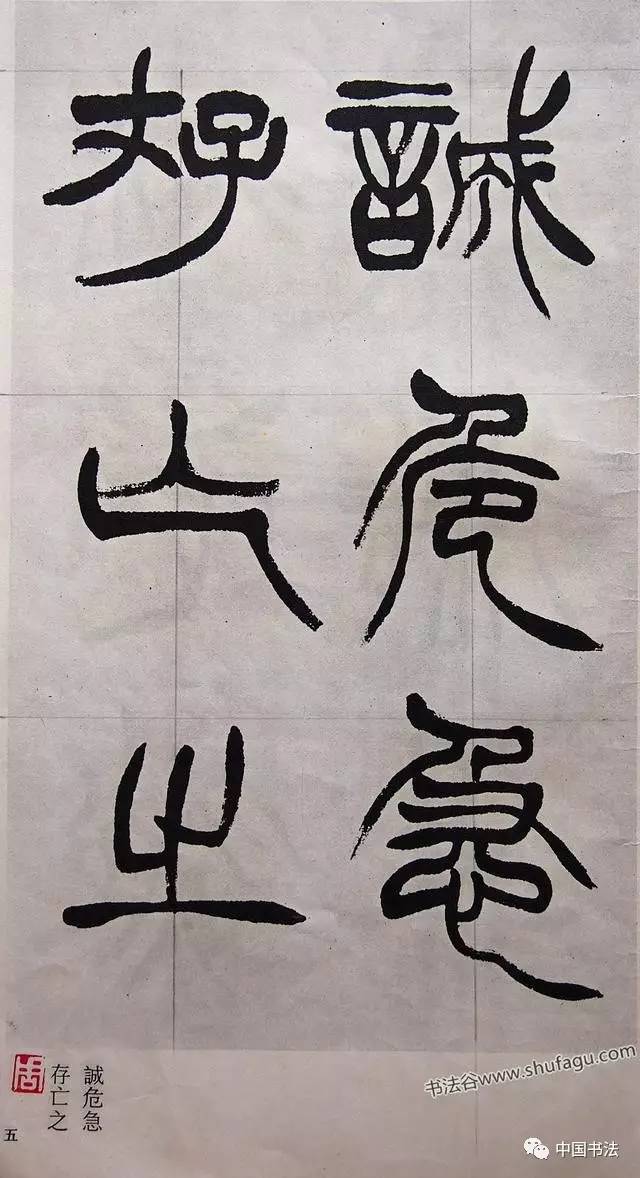 誠危急
存亡之
誠危急
存亡之
五
书法谷www.shufagu.com
中国书法